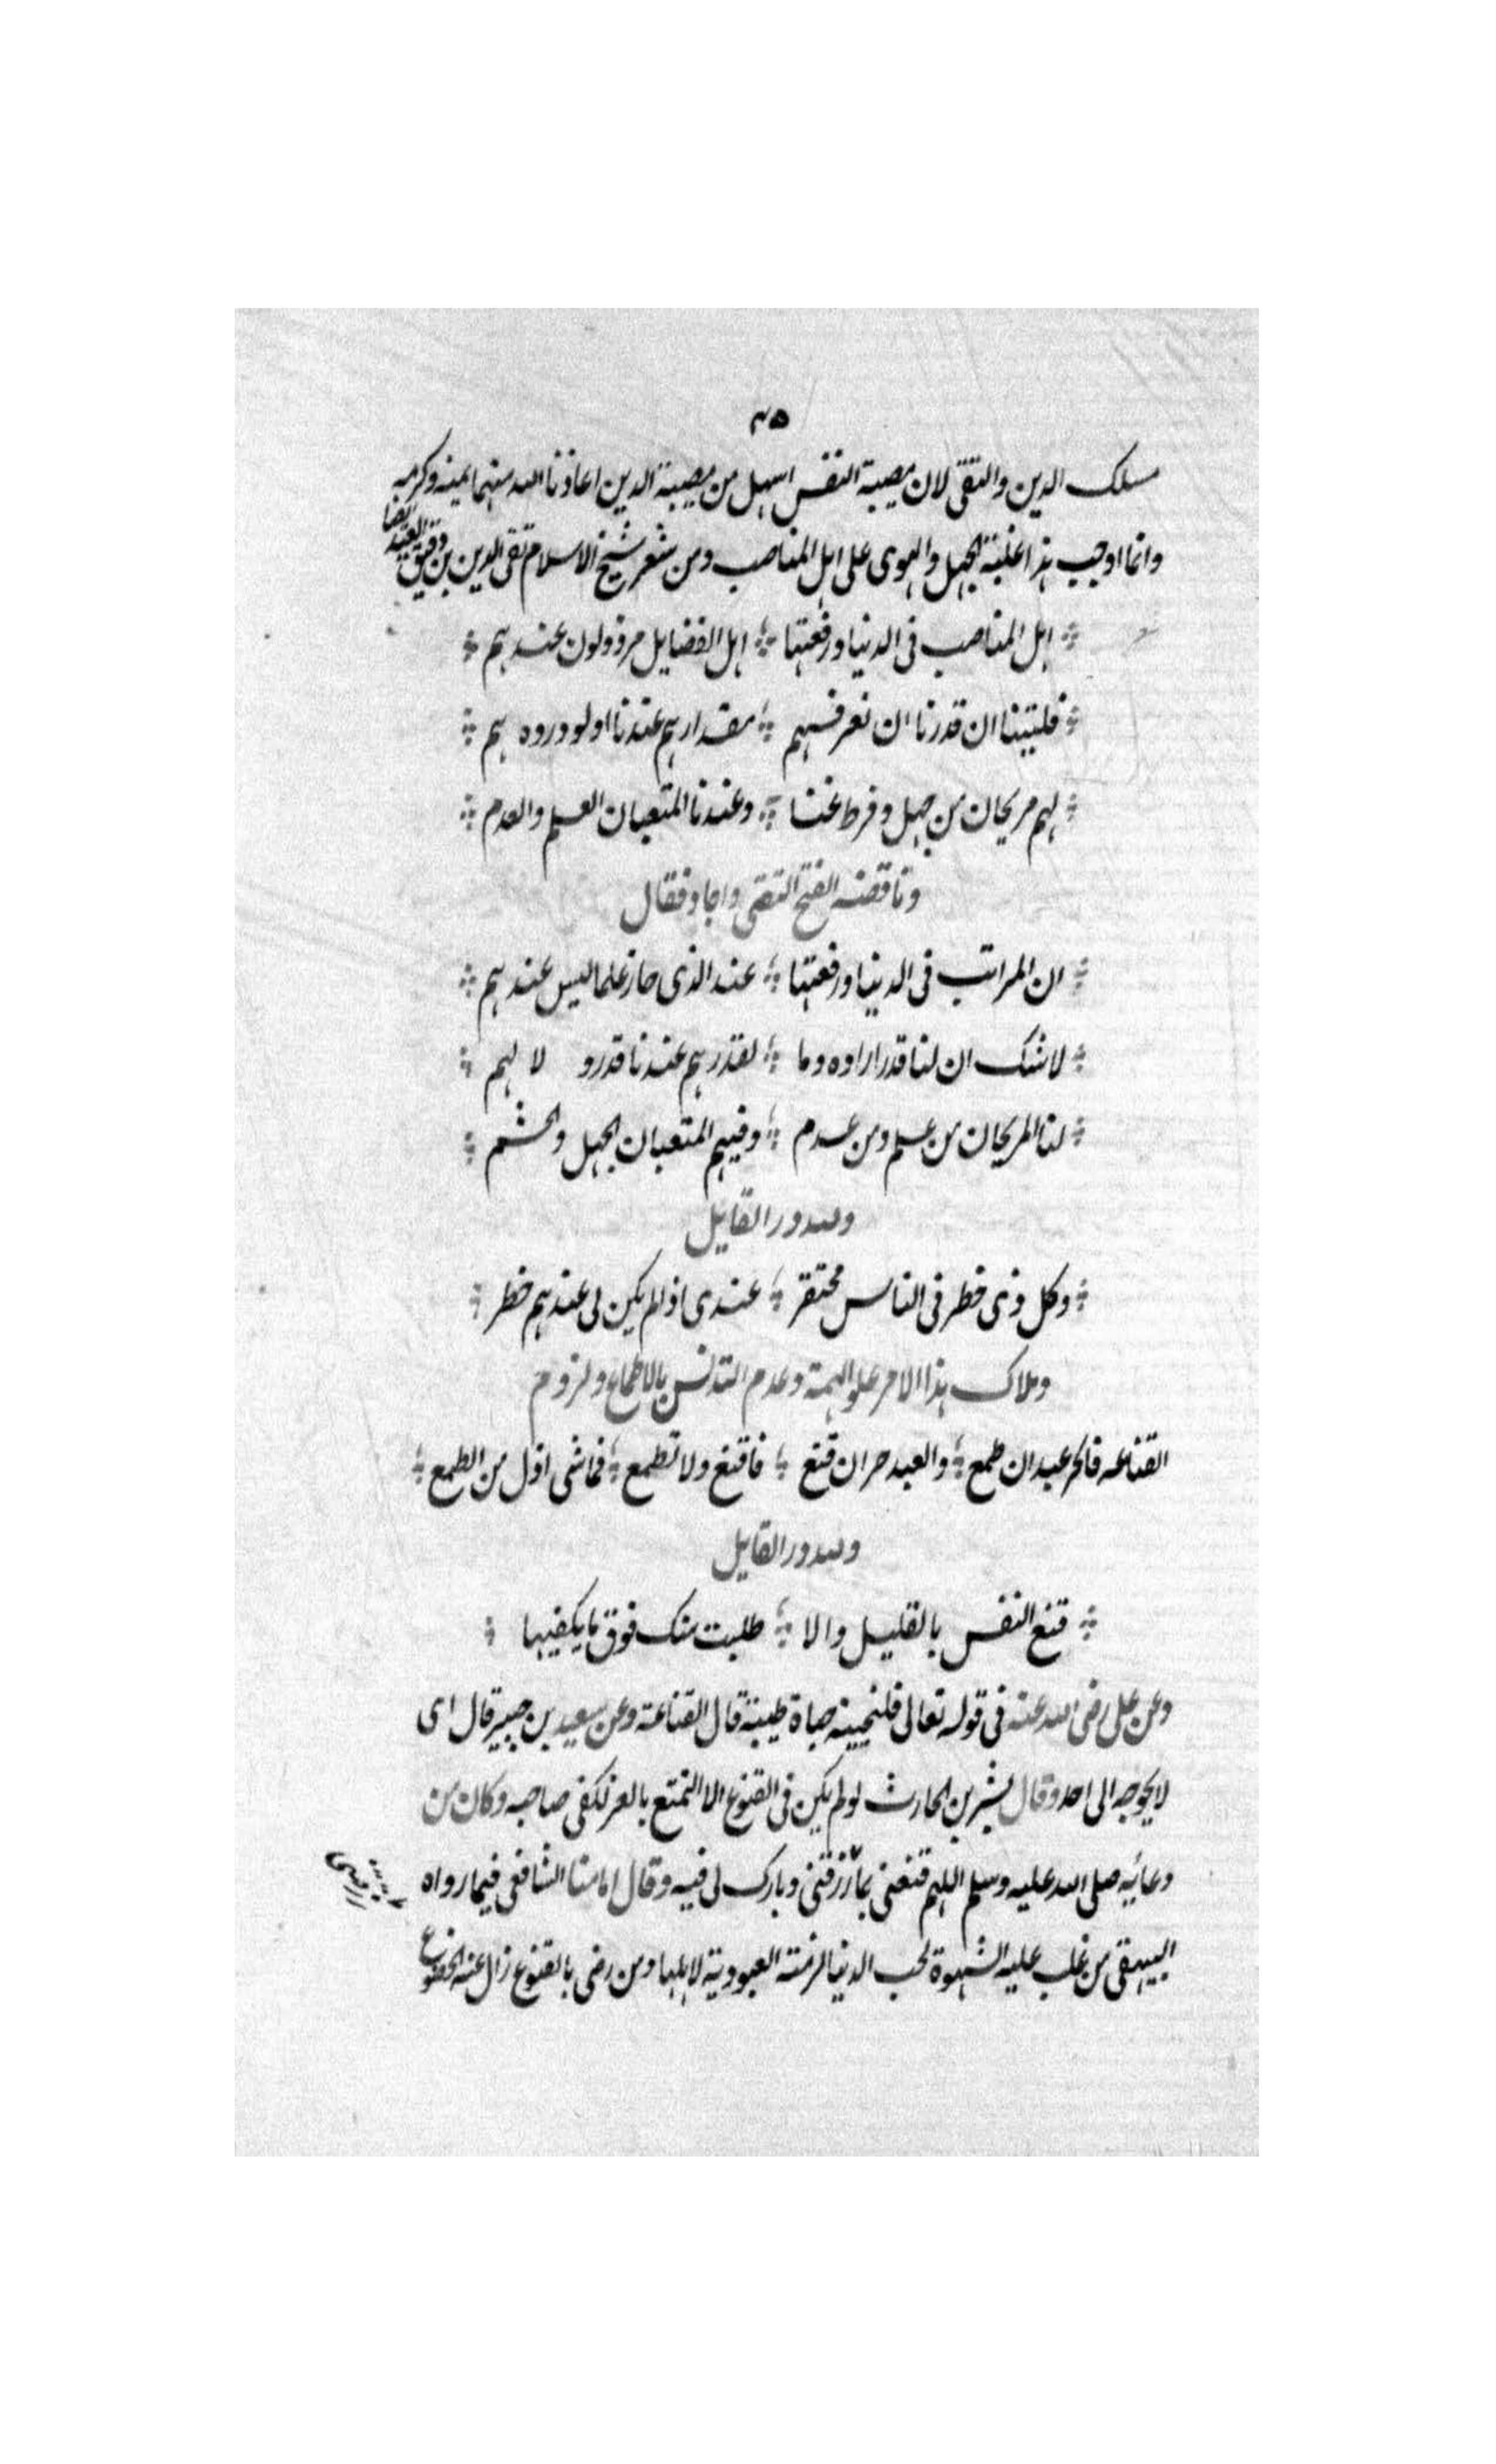 ٣٥
مسلك الدين والتقى لان مصيبة النفس اسهل من مصيبة الدين اعاذنا الله منهما بمنه وكرمه
وانما اوجب هذا غلبة الجهل والهوى على اهل المناصب ومن شعر شيخ الاسلام تقى الدين بن دقيق العيد
اهل المناصب فى الدنيا ورفعتها ؛ اهل الفضايل مرذولون عندهم
فليتنا ان قدرنا ان نعرفهم ؛ مقدارهم عندنا اولو دروه هم
لهم مريحان من جهل وفرط غنا ؛ وعندنا المتعبان العلم والعدم
وناقضه الفتح الثقفى واجاد فقال
ان المراتب فى الدنيا ورفعتها ؛ عند الذى حاز علما ليس عندهم
لاشك ان لنا قدرا راوه وما ؛ لقدرهم عندنا قدر و لا لهم
لنا المريحان من علم ومن عدم ؛ وفيهم المتعبان الجهل والحشم
ولله در القايل
وكل ذى خطر فى الناس محتقر ؛ عندى اذ لم يكن لى عندهم خطر
وملاك هذا الامر علو الهمة وعدم التدنس بالاطماع ولزوم
القناعه فالحر عبد ان طمع ؛ والعبد حر ان قنع ؛ فاقنع ولا تطمع ؛ فما شى اذل من الطمع
ولله در القايل
قنع النفس بالقليل والا ؛ طلبت منك فوق ما يكفيها
وعن على رضى الله عنه فى قوله تعالى فلنحيينه حياة طيبة قال القناعة وعن سعيد بن جبير قال اى
لا يحوجه الى احد وقال بشر بن الحارث لو لم يكن فى القنوع الا التمتع بالعز لكفى صاحبه وكان من
دعائيه صلى الله عليه وسلم اللهم قنعنى بما رزقتنى وبارك لى فيه وقال امامنا الشافعى فيما رواه
البيهقى من غلب عليه الشهوة لحب الدنيا لزمته العبودية لاهلها ومن رضى بالقنوع زال عنه الخضوع